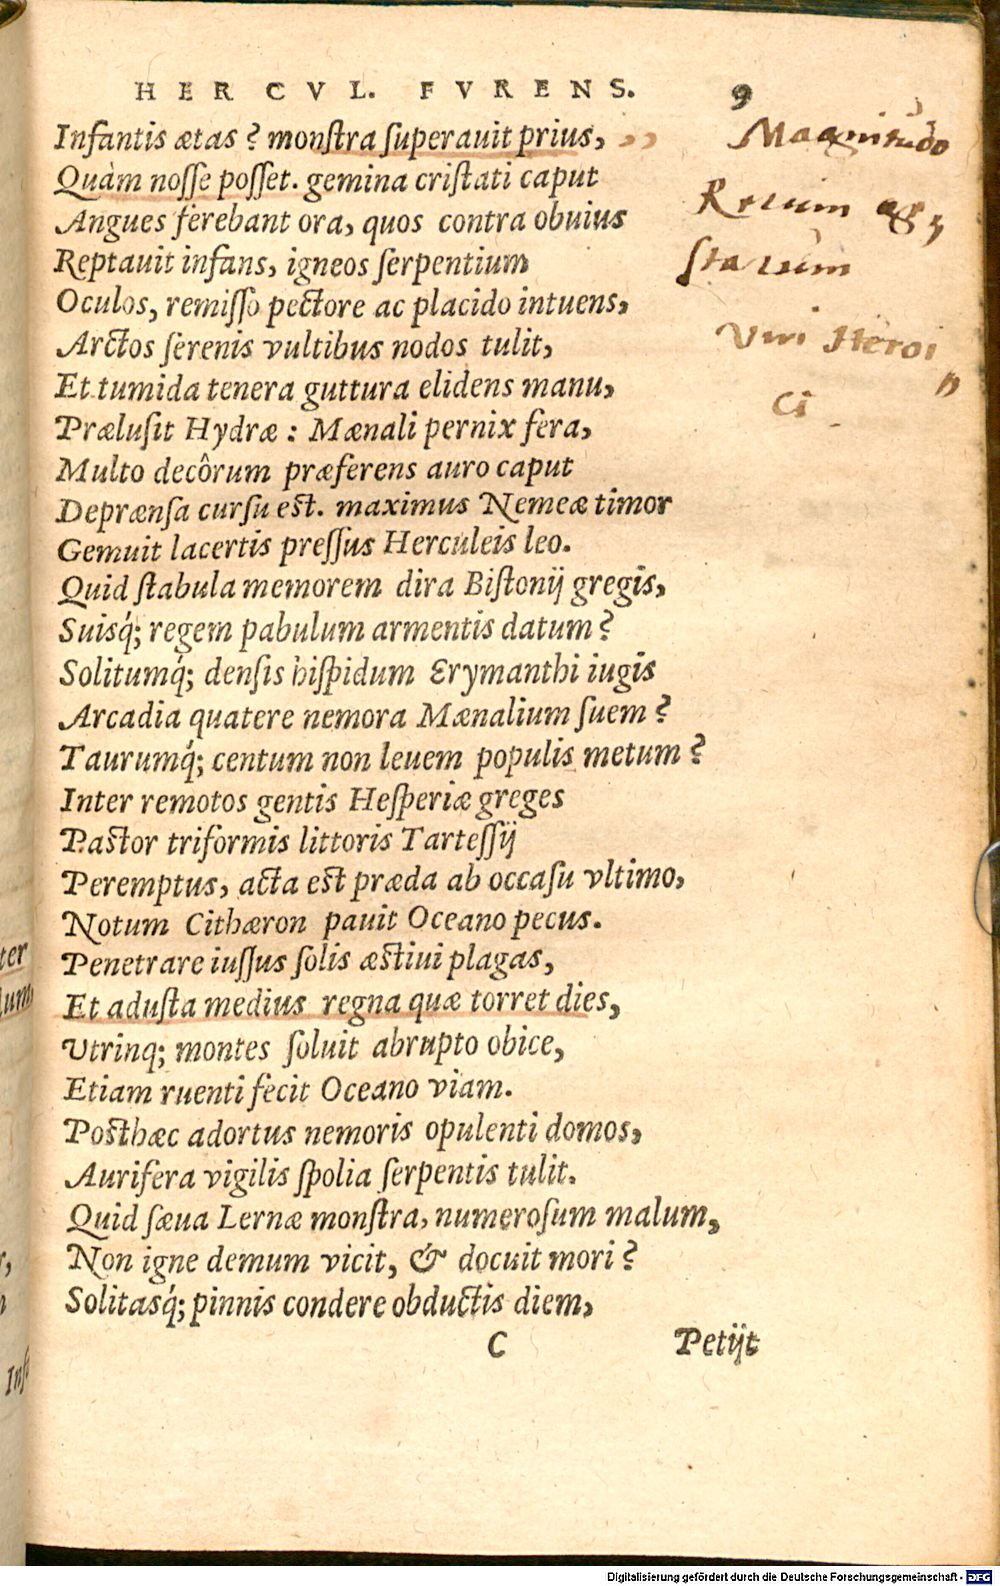 HERCVL. FVRENS. 9
Infantis ætas? monſtra ſuperauit prius,
Quàm noſſe poſſet. gemina criſtati caput
Angues ferebant ora, quos contra obuius
Reptauit infans, igneos ſerpentium
Oculos, remiſſo pectore ac placido intuens,
Arctos ſerenis vultibus nodos tulit,
Et tumida tenera guttura elidens manu,
Præluſit Hydræ: Mænali pernix fera,
Multo decôrum præferens auro caput
Deprænſa curſu est. maximus Nemeæ timor
Gemuit lacertis preſſus Herculeis leo.
Quid ſtabula memorem dira Biſtonij gregis,
Suisq́; regem pabulum armentis datum?
Solitumq́; denſis hiſpidum Erymanthi iugis
Arcadia quatere nemora Mænalium ſuem?
Taurumq́; centum non leuem populis metum?
Inter remotos gentis Heſperiæ greges
Pastor triformis littoris Tarteſſij
Peremptus, acta est præda ab occaſu vltimo,
Notum Cithæron pauit Oceano pecus.
Penetrare iuſſus ſolis æstiui plagas,
Et aduſta medius regna quæ torret dies,
Vtrinq; montes ſoluit abrupto obice,
Etiam ruenti fecit Oceano viam.
Posthæc adortus nemoris opulenti domos,
Aurifera vigilis ſpolia ſerpentis tulit.
Quid ſæua Lernæ monſtra, numeroſum malum,
Non igne demum vicit, & docuit mori?
Solitasq́; pinnis condere obductis diem,
C Petijt
Magnitudo
Rerum
Viri Heroi
ci
ter
Digitalisierung gefördert durch die Deutsche Forschungsgemeinschaft - DFG